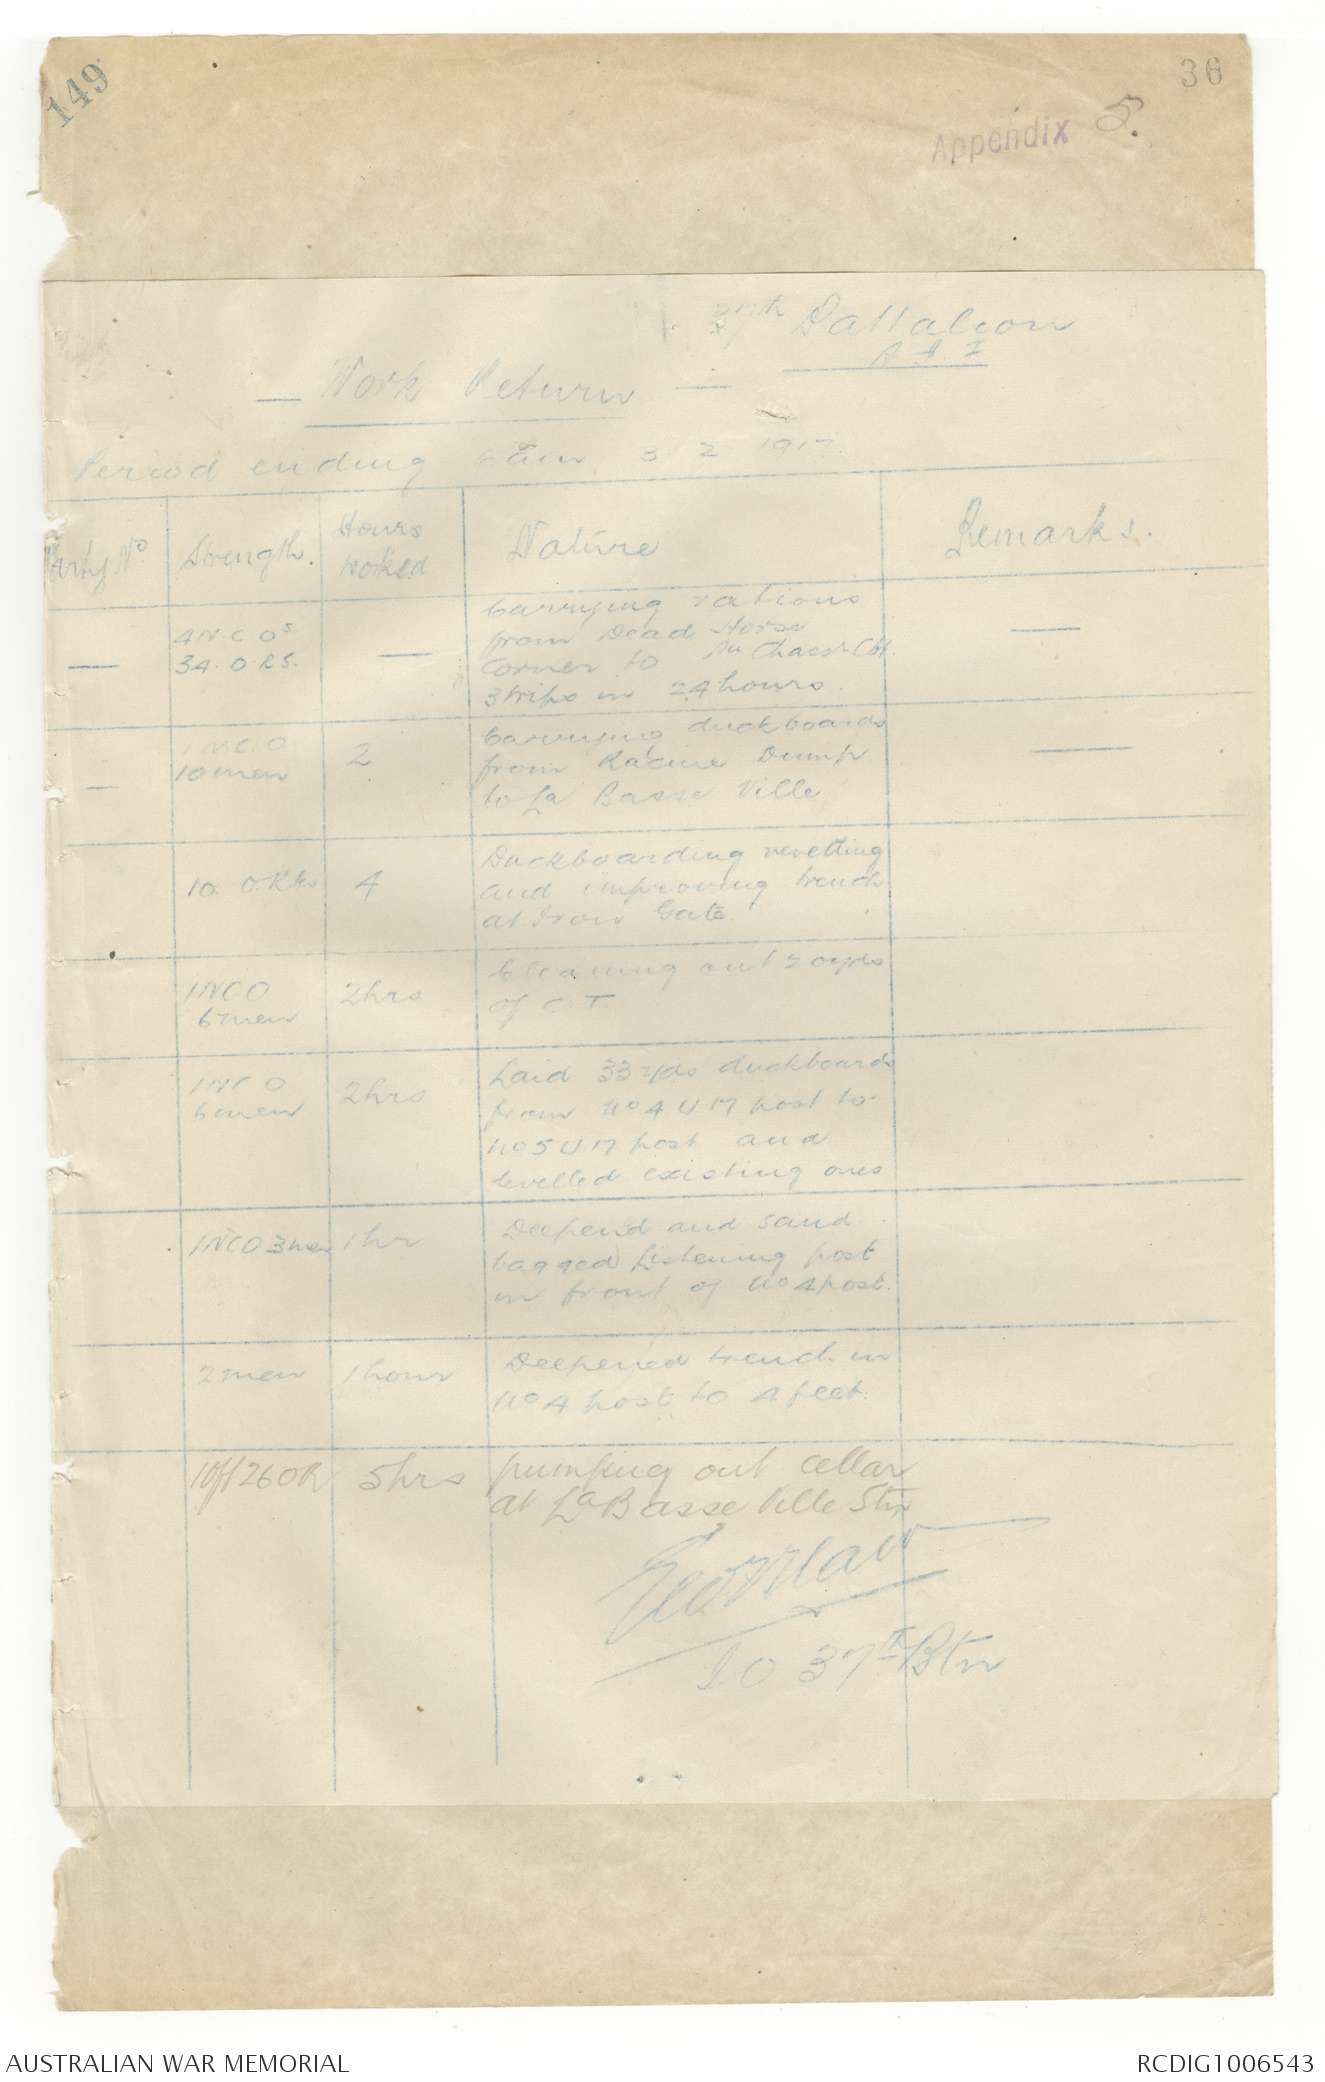 149
36
Appendix 5.
37th Battalion
A I F
— Work Return —
Period ending 6 am 3 2 1917
Party No Strength. Hours woked Nature Remarks.
— 4 N.C.Os 34 O RS. — Carrying rations —
from Dead Horse
Corner to Chass Cot.
3 trips in 24 hours.
— 1 N.C.O 10 men 2 Carrying duckboards —
from Racine Dump
to La Basse Ville
10. O.Rks 4 Duckboarding revetting
and improving trench
at Iron Gate.
1 NCO 6 men 2 hrs Cleaning out 20 yds
of C.T
1 NCO 6 men 2 hrs Laid 33 yds duckboards
from No 4 U 17 post to
No 5 U 17 post and
levelled existing ones
1 NCO 3 men 1 hr Deepend and sand
bagged Listening post
in front of No 4 post.
2 men 1 hour Deepened trench in
No 4 post to 4 feet.
1 Off 26 OR 5 hrs pumping out cellar
at La Basse Ville Stn
I O 37th Btn
AUSTRALIAN WAR MEMORIAL
RCDIG1006543